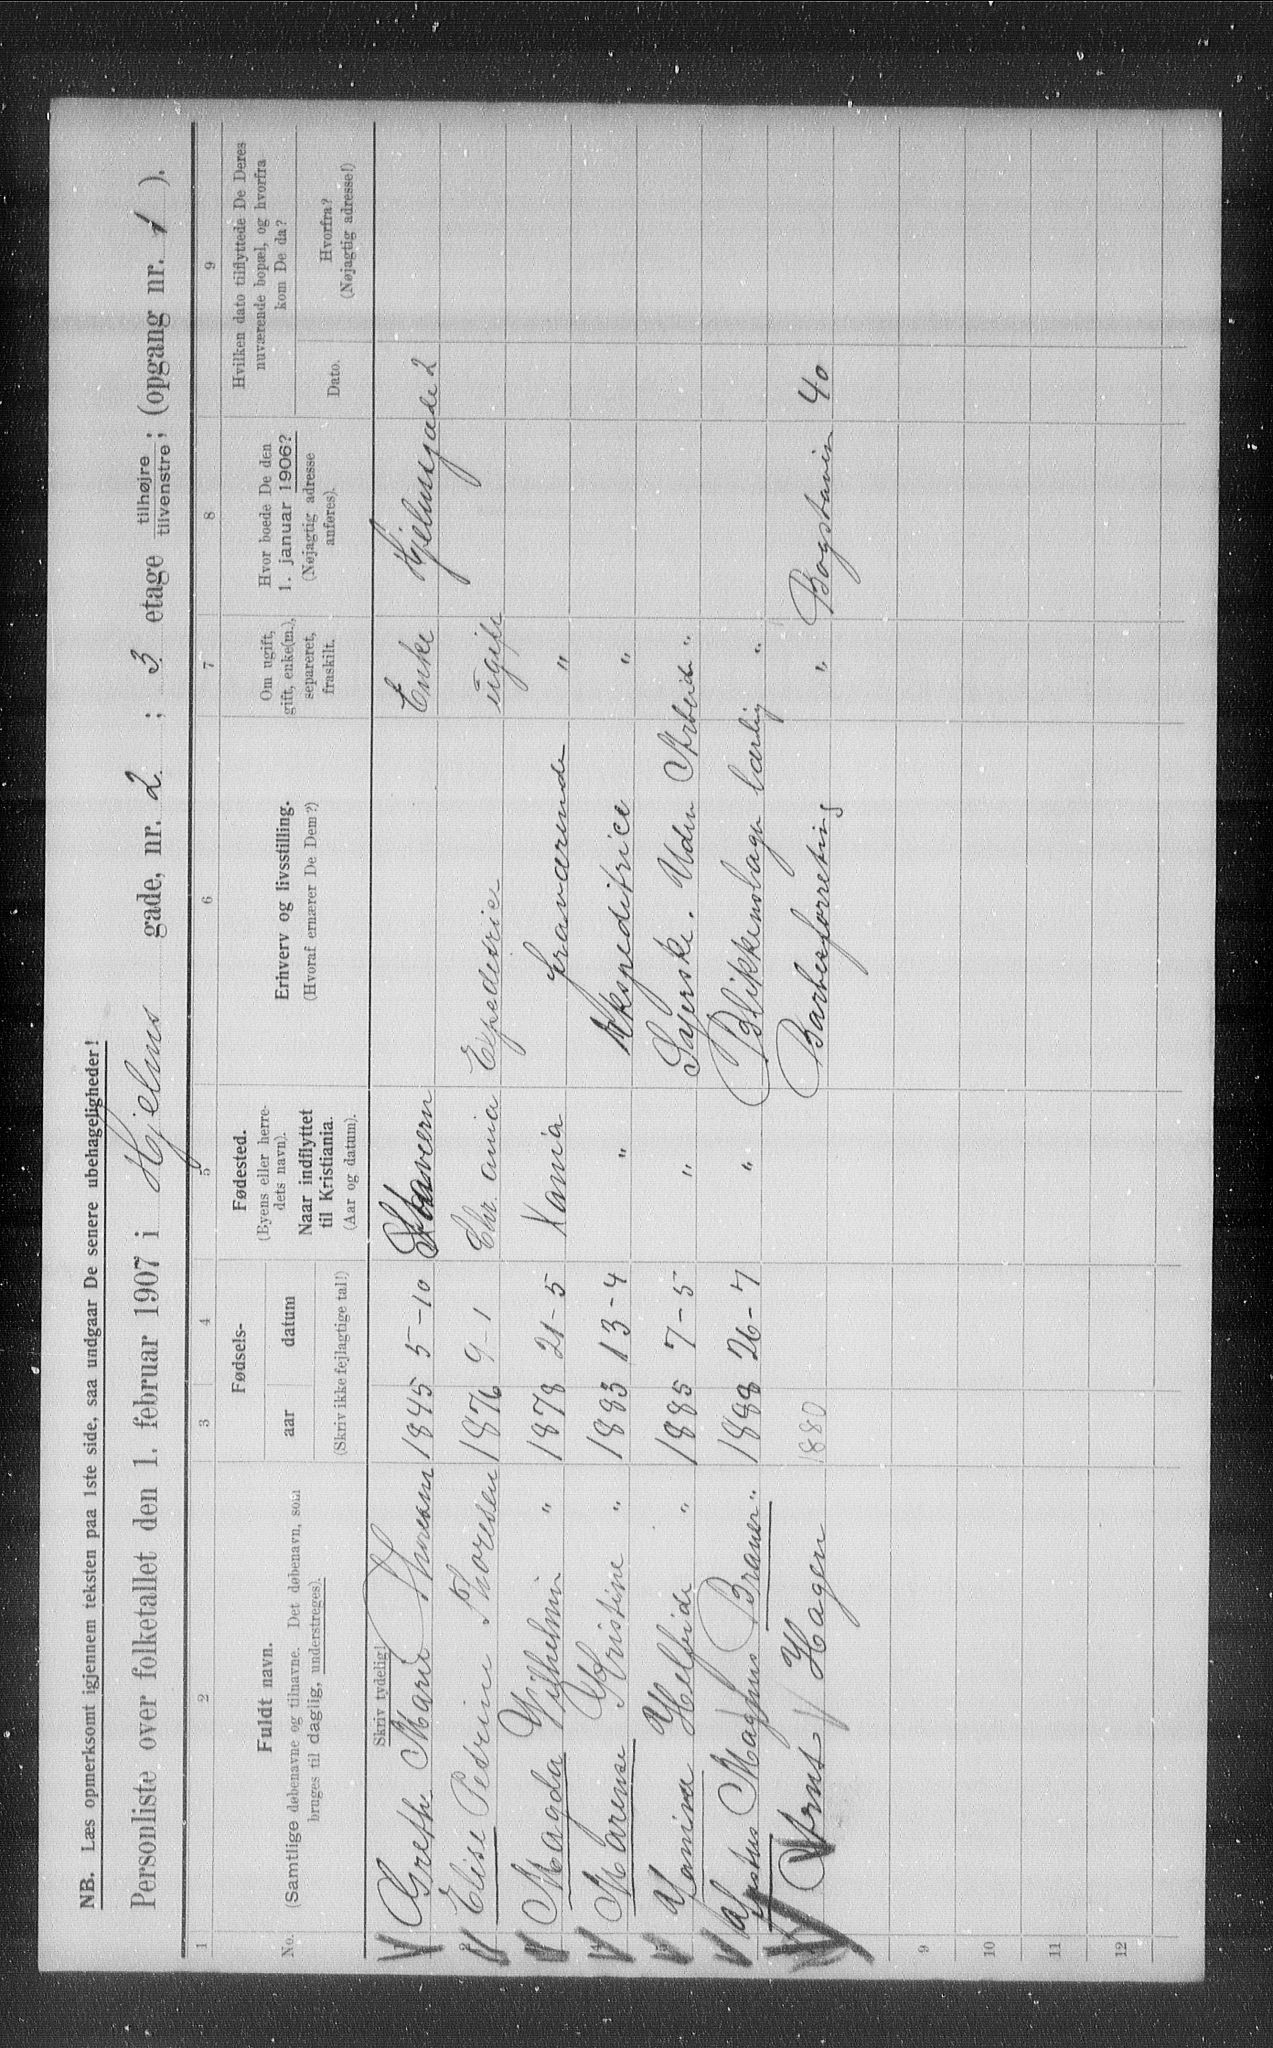 NB. Læs opmerksomt igjennem teksten paa 1ste side, saa undgaar De senere ubehageligheder!
Personliste over folketallet den 1. februar 1907 i Hjelms gade, nr. 2 ; 3 etage tilhøjre tilvenstre ; (opgang nr. 1 ).
1 2 3 4 5 6 7 8 9
No.
Fuldt navn.
(Samtlige døbenavne og tilnavne. Det døbenavn, som
bruges til daglig, understreges).
Fødsels-
aar datum
(Skriv ikke fejlagtige tal!)
Fødested.
(Byens eller herre-
dets navn).
Naar indflyttet
til Kristiania.
(Aar og datum).
Erhverv og livsstilling.
(Hvoraf ernærer De Dem?)
Om ugift,
gift, enke(m.),
separeret,
fraskilt.
Hvor boede De den
1. januar 1906?
(Nøjagtig adresse
anføres).
Hvilken dato tilflyttede De Deres
nuværende bopæl, og hvorfra
kom De da?
Dato.
Hvorfra?
(Nøjagtig adresse!)
Skriv tydelig!
Grethe Marie Thoresen 1845 5-10 Enke Hjelmsgade 2
2 Elise Petrine Thoresen 1876 9-1 Chr. ania Expedetrice ugift
Magda Vilhelmin " 1878 21-5 Xania fraværende "
4 Marense Kristine " 1883 13-4 " Ekspeditrice "
Janina Helfride " 1885 7-5 " Syerske. Uden Arbeide "
Justus Magnus Braner " 1888 26-7 " Blikkenslager lærling "
Arnt Hagen 1880 Barberforretning " Bogstadvein 40
9
10
11
12